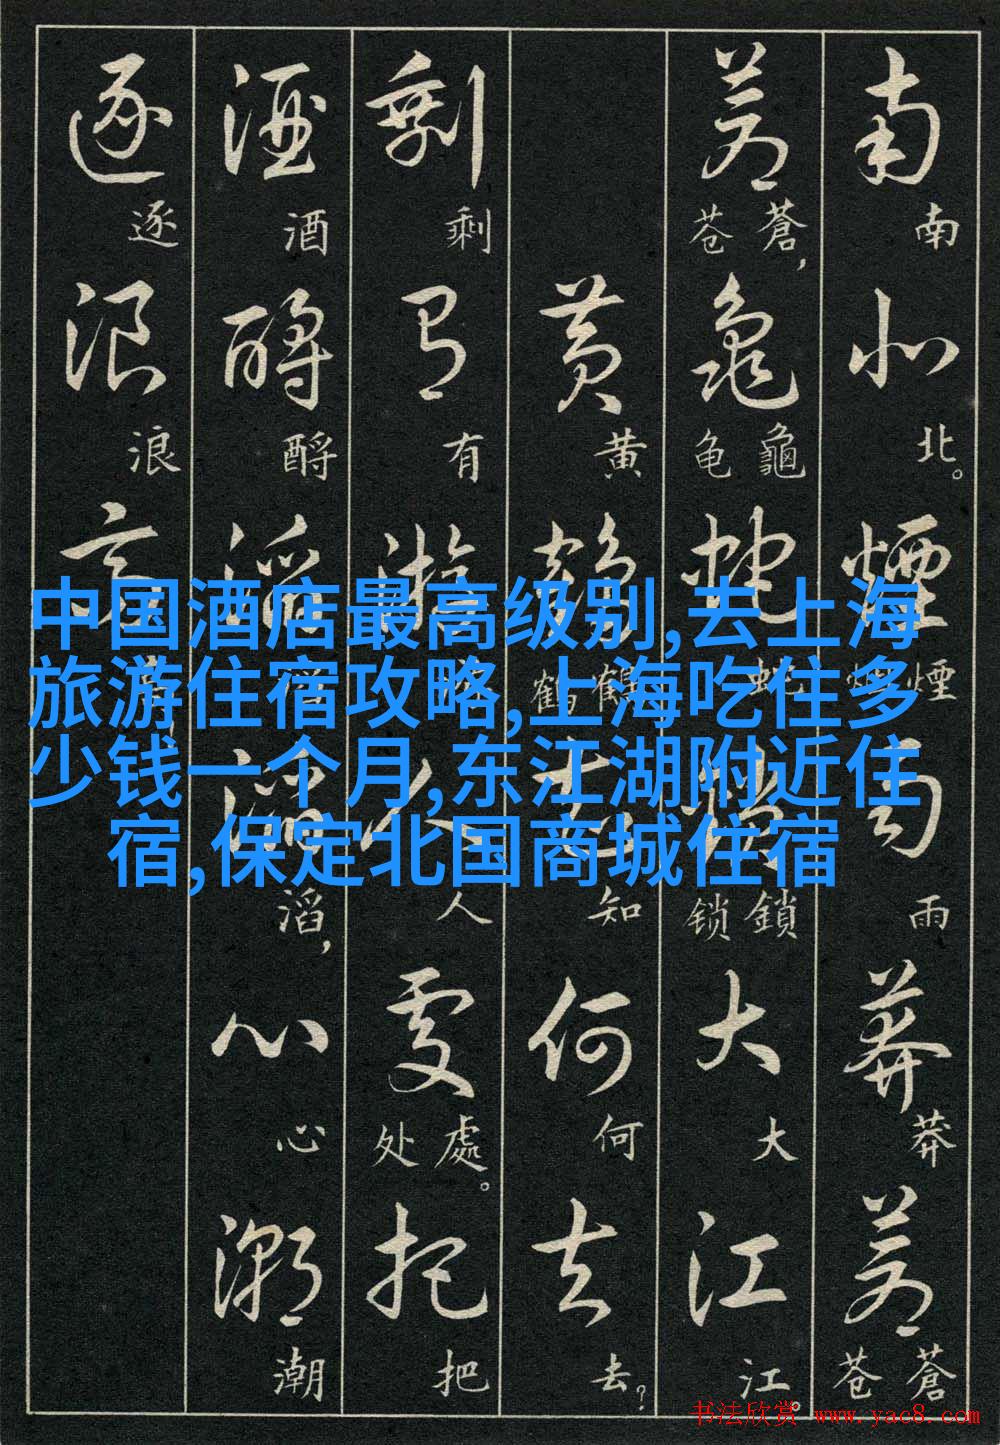 南北煙雨莽蒼
南北。煙雨莽苍蒼
蒼龜蛇鎖大江
苍蒼，龟龜蛇锁鎖大江。
黄鶴知何去
黄鹤鶴知何去？
剩有游人處把
剩有人处處。把
酒酹滔滔心潮
酒酹滔，心潮
逐浪高
逐浪
中国酒店最高级别,去上海
旅游住宿攻略,上海吃住多
少钱一个月,东江湖附近住
宿,保定北国商城住宿
书法欣赏 www.yac8.com